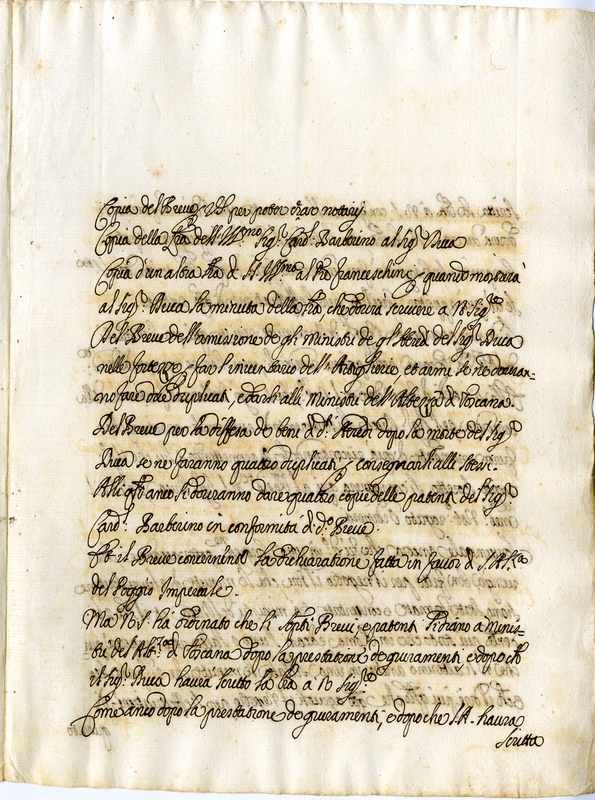 Copia del Breve per poter notarij
Copia della lra dell' Ill.mo Sig.r Card. Barberino al Sig.r Duca
Copia d'un altra lra d. S. Ill.ma al Pre franceschini quando mostrerà
al Sig.r Duca la minuta della lra, che dovrà scrivere a N. Sig.re
Del Breve dell'amissione de gli ministri de gl'Heredi del Sig.r Duca
nelle fortezze far l'inventario dell'Artiglierie, et armi se ne dovran=
no fare due duplicati, e darsi alli Ministri dell'Altezza di Toscana.
Del Breve per la diffesa de beni d. d.i Heredi dopo la morte del Sig.r
Duca se ne faranno quattro duplicati consegnarsi alli stessi.
Alli q.li anco si dovranno dare quattro copie delle patenti del Sig.r
Card. Barberino in conformità d. d.o Breve
il Breve concernente la dichiaratione fatta in favor d. S. A.
del Poggio Imperiale.
Ma N. S. ha ordinato che li Brevi, e patenti si diano a Minis=
tri del Alt.za di Toscana dopo la prestatione de giuramenti e dopo che
il Sig.r Duca haurà scritto la lra a N. Sig.re
Come anco dopo la prestatione de giuramenti, e dopo che S. A. haurà
scritta